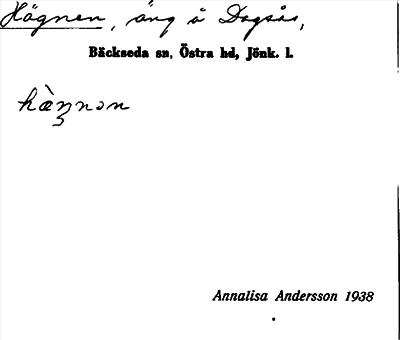 Hägnen, äng å Dagsås,
Bäckseda sn, Östra hd, Jönk. l.
hæ̀ŋnən
Annalisa Andersson 1938